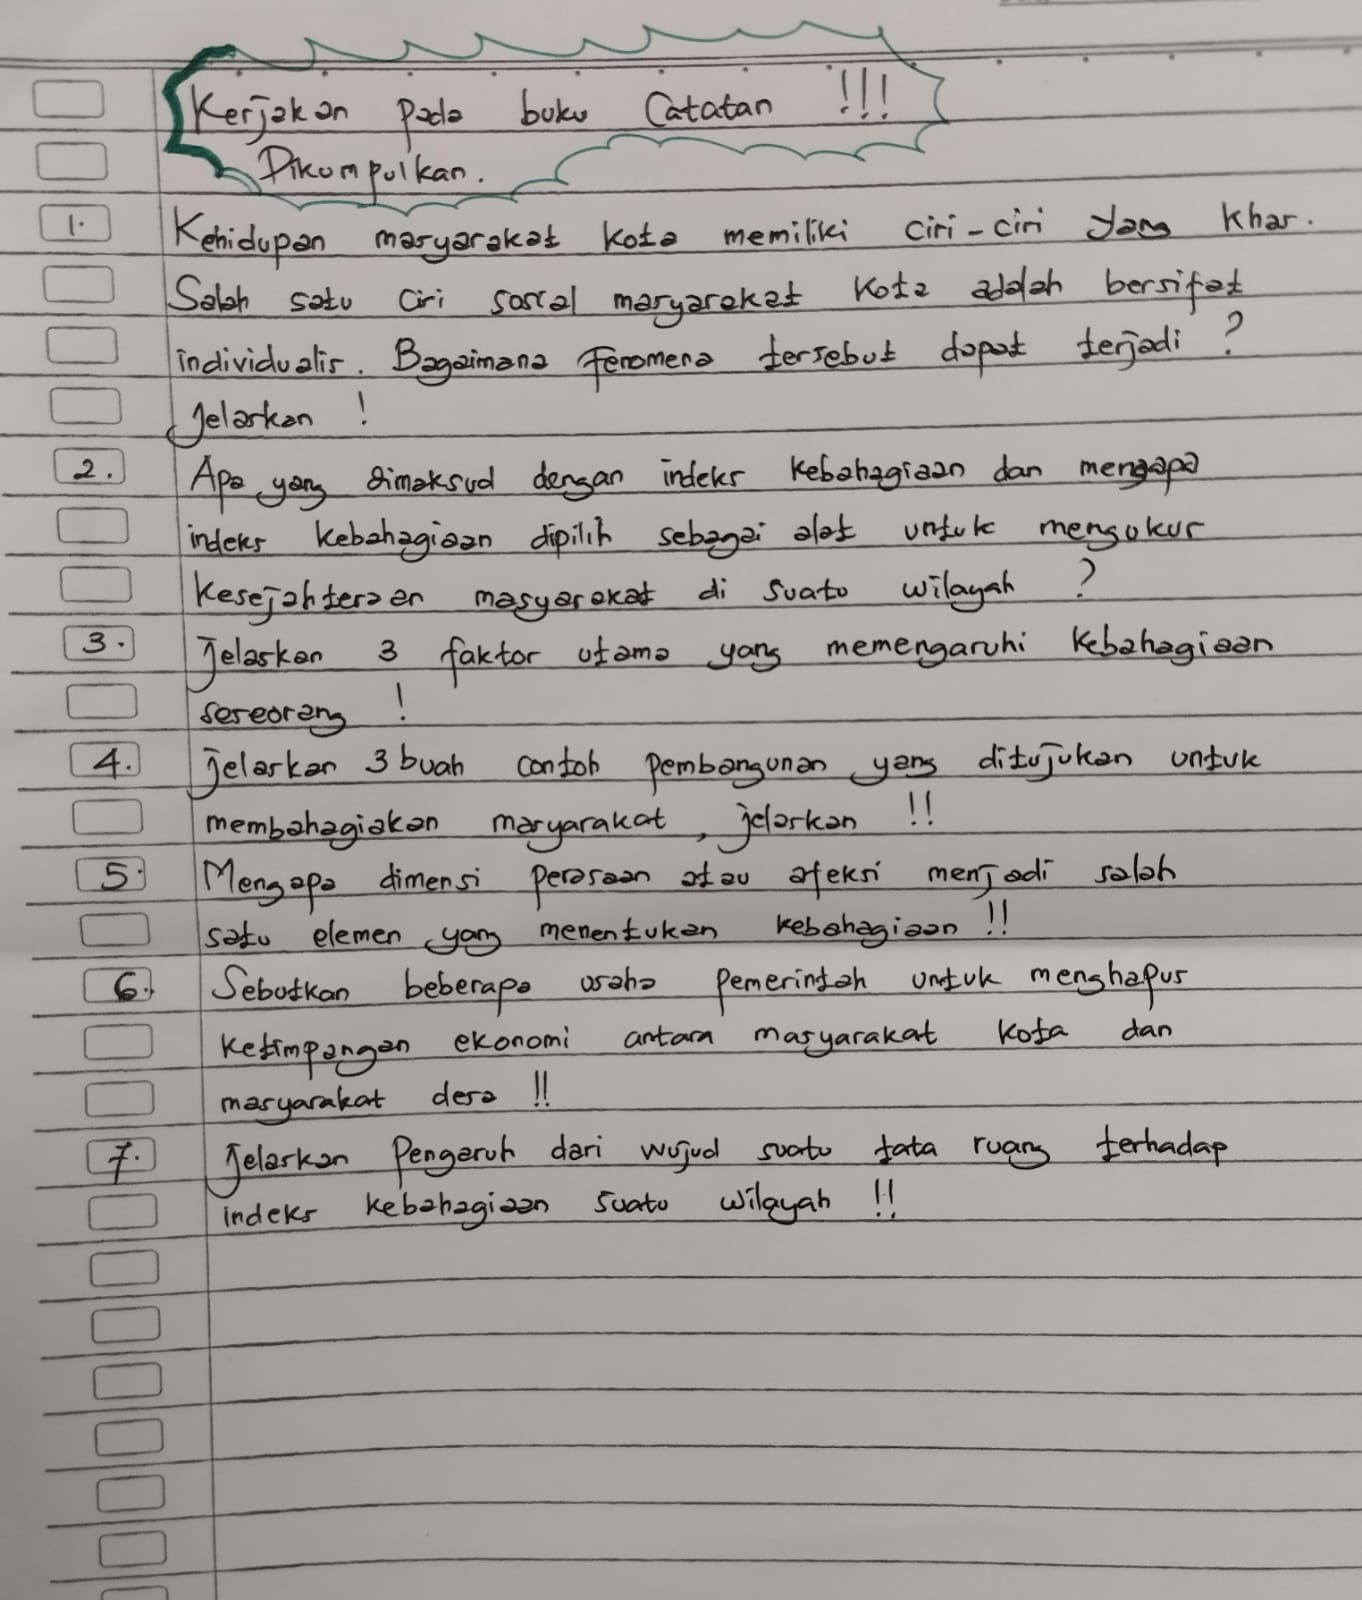 Kerjakan pada buku Catatan !!!
Dikumpulkan.
1. Kehidupan masyarakat kota memiliki ciri-ciri yang khas.
Salah satu ciri sosial masyarakat kota adalah bersifat
individualis. Bagaimana fenomena tersebut dapat terjadi ?
Jelaskan !
2. Apa yang dimaksud dengan indeks kebahagiaan dan mengapa
indeks kebahagiaan dipilih sebagai alat untuk mengukur
kesejahteraan masyarakat di suatu wilayah ?
3. Jelaskan 3 faktor utama yang memengaruhi kebahagiaan
seseorang !
4. Jelaskan 3 buah contoh pembangunan yang ditujukan untuk
membahagiakan masyarakat, jelaskan !!
5. Mengapa dimensi perasaan atau afeksi menjadi salah
satu elemen yang menentukan kebahagiaan !!
6. Sebutkan beberapa usaha pemerintah untuk menghapus
ketimpangan ekonomi antara masyarakat kota dan
masyarakat desa !!
7. Jelaskan Pengaruh dari wujud suatu tata ruang terhadap
indeks kebahagiaan suatu wilayah !!